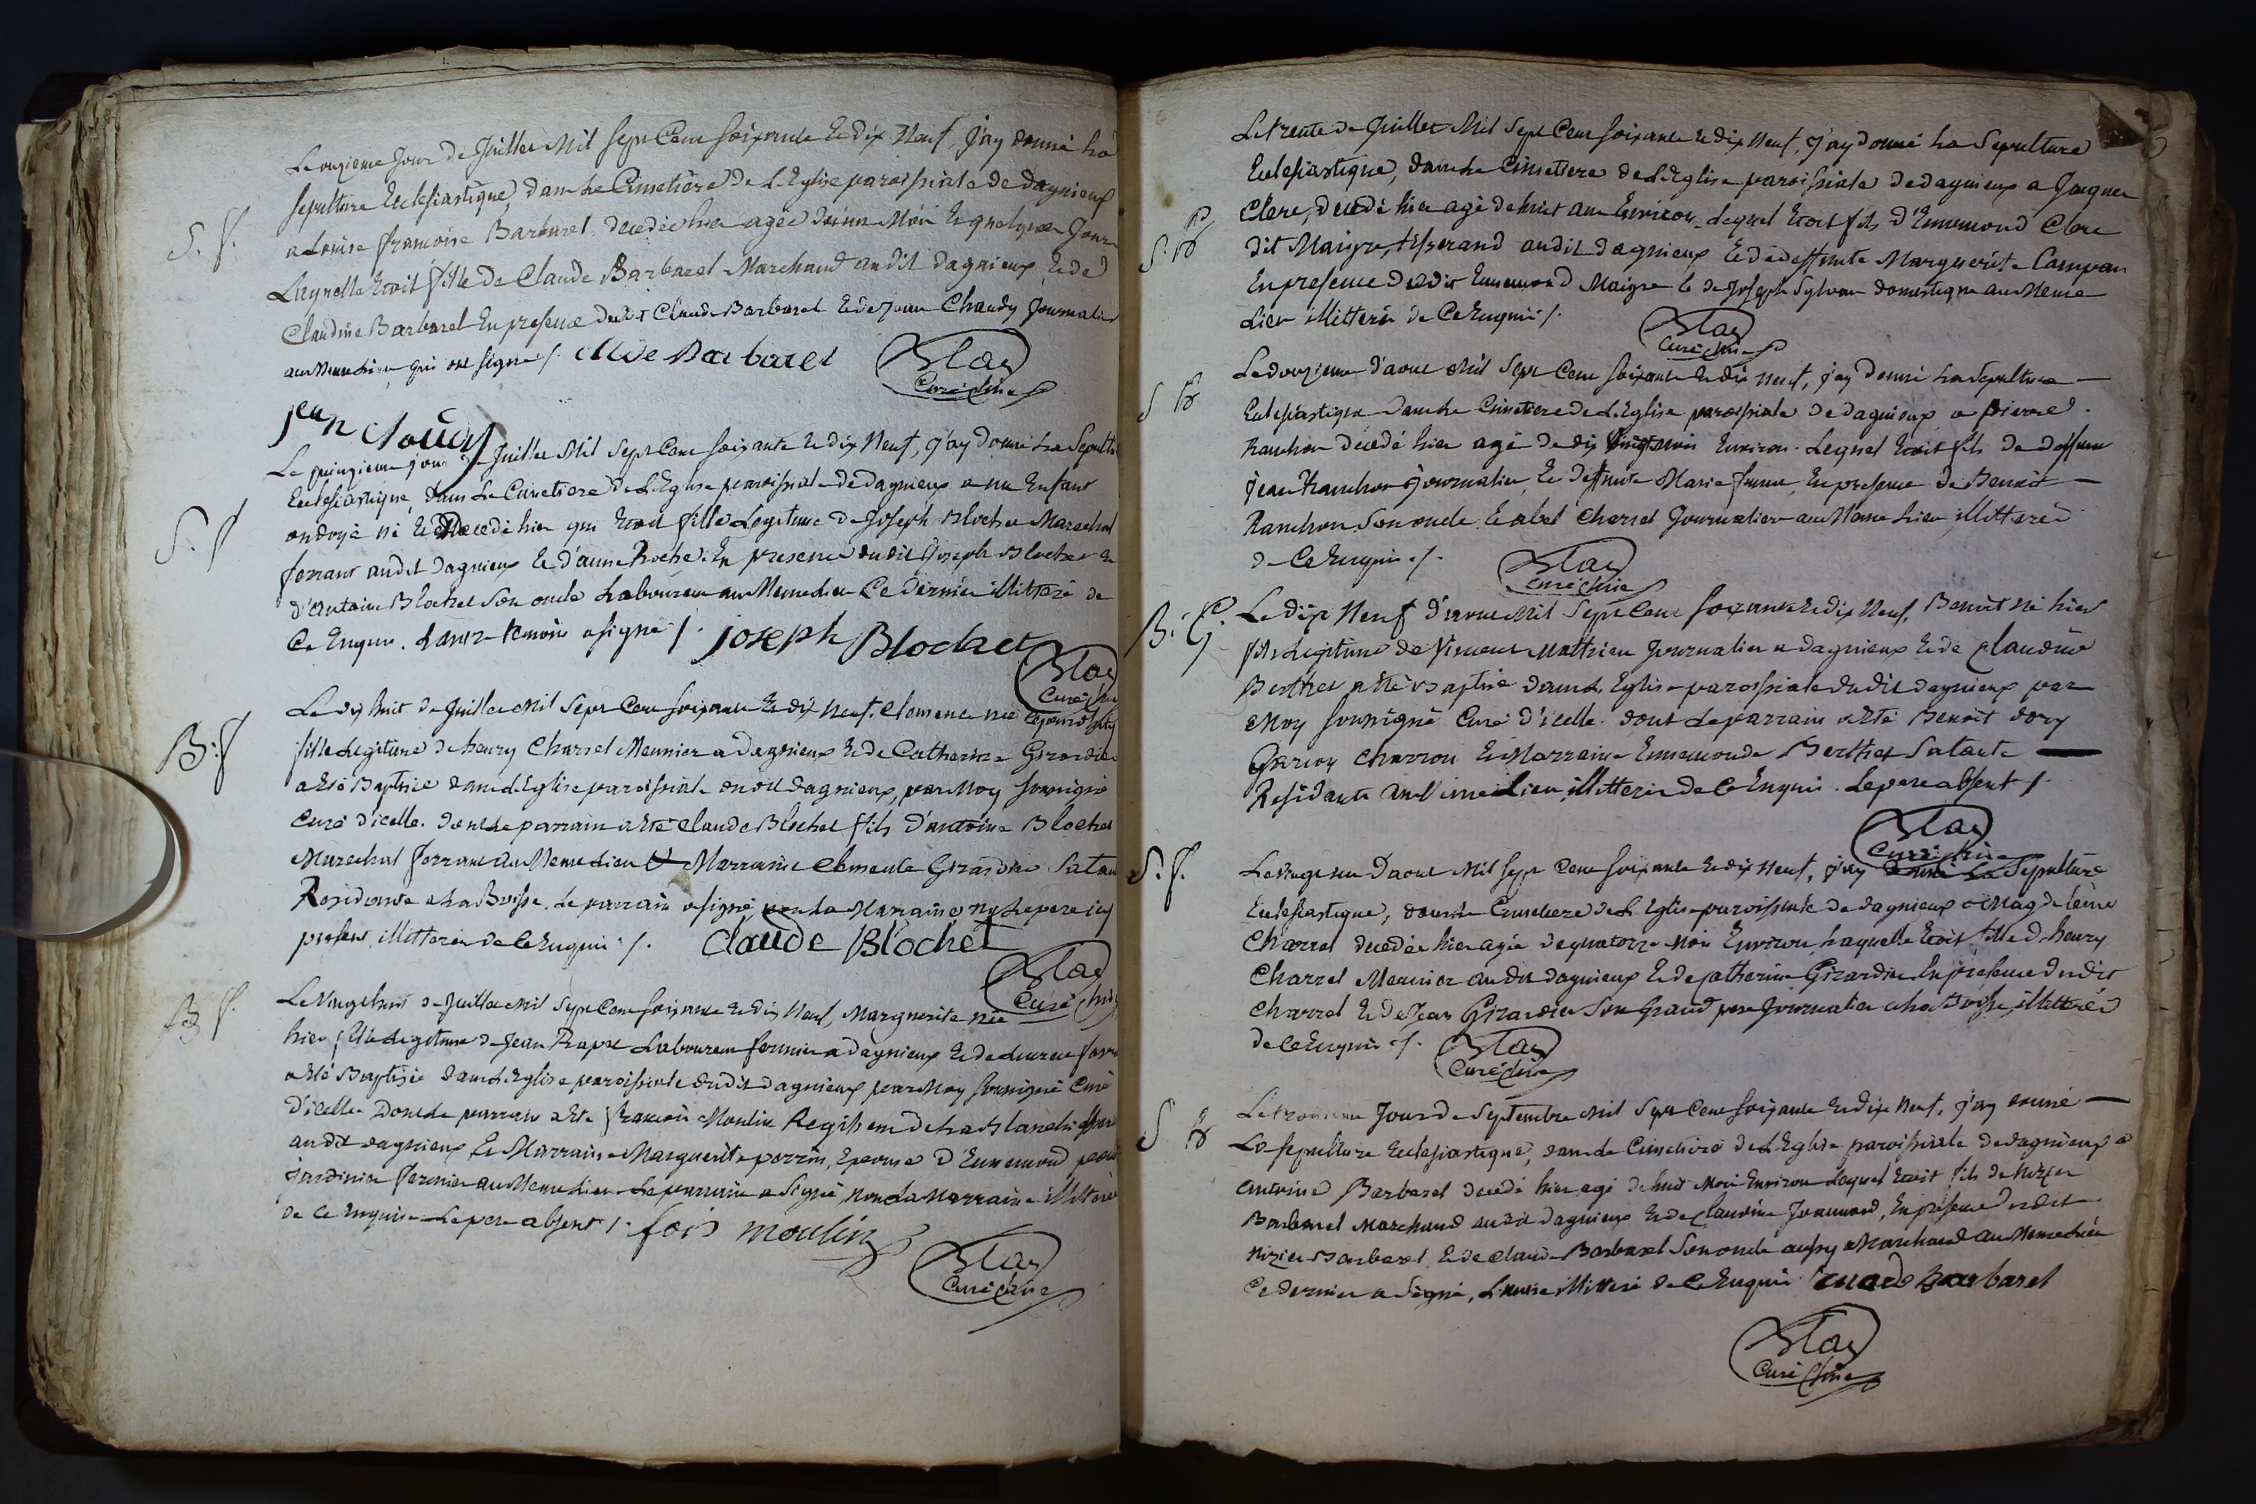 Le onzieme Jour de Juillet Mil Sept Cent soixante Et dix Neuf, J'ay donné La
S. f. sepulture Ecclesiastique, dans Le Cimetiere De L'Eglise paroissiale De Dagnieux
a Louise françoise Barbaret decedée hier agée d'un Mois Et quelques Jours
Laquelle Etoit fille De Claude Barbaret Marchand audit Dagnieux Et de
Claudine Barbaret En presence dudit Claude Barbaret Et de Jean Chaudy Journalier
au Meme Lieu qui ont signé /. Clude Barbaret Blay
Curé
jean choudy
Le quinzieme jour de Juillet Mil Sept Cent soixante Et dix Neuf, j'ay donné La Sepulture
S. f Ecclesiastique, dans Le Cimetiere De L'Eglise paroissiale de Dagnieux a un Enfant
ondoyé né Et decedé hier qui Etoit fille Legitime de Joseph Blochet Marechal
ferrant audit Dagnieux Et d'anne Roche. En presence dudit Joseph Blochet Et
d'Antoine Blochet son oncle Laboureur au Meme Lieu Ce dernier illitteré de
Ce Enquis. L'autre temoin a signé /. joseph Blochet
Blay
Curé
Le dix huit de Juillet Mil Sept Cent soixante Et dix neuf. Clemence née
B. f fille Legitime de henry Charrel Meunier a Dagnieux Et de Catherine Girardin
a Eté Baptisée dans L'Eglise paroissiale dudit Dagnieux, par Moy soussigné
Curé d'icelle. dont Le parrain a Eté Claude Blochet fils d'antoine Blochet
Marechal ferrant au Meme Lieu Et Marraine Clemence Girardin Sa tante
Residante a La Boisse. Le parrain a signé, non La Marraine ny Le pere icy
present illitterés de Ce Enquis /. Claude Blochet
Blay
Curé
B f. Le Vingt huit de Juillet Mil Sept Cent soixante Et dix Neuf, Marguerite née
hier fille Legitime de Jean Laboureur fermier a Dagnieux Et de
a Eté Baptisée dans L'Eglise paroissiale dudit Dagnieux par Moy soussigné Curé
d'icelle. Dont Le parrain a Eté françois Moulin Regisseur de La
audit Dagnieux, Et Marraine Marguerite perrin, Epouse d'Ennemond
Jardinier fermier au Meme Lieu. Le parrain a Signé, non La Marraine illitterée
de Ce Enquise Le pere absent /. fois moulin
Blay
Curé
Le trente de Juillet Mil Sept Cent soixante Et dix Neuf, J'ay donné La Sepulture
Ecclesiastique, dans Le Cimetiere de L'Eglise paroissiale de dagnieux a Jacques
S. Clerc, decedé hier agé de huit ans Environ. Lequel Etoit fils d'Ennemond Clerc
dit Maigre, audit dagnieux Et de deffunte Marguerite
En presence dudit Ennemond Maigre Et de Joseph Sylvan domestique au Meme
Lieu illitterés de Ce Enquis /.
Blay
Curé
Le douzieme d'aout Mil Sept Cent soixante Et dix Neuf, j'ay donné La Sepulture
S Ecclesiastique dans Le Cimetiere de L'Eglise paroissiale de dagnieux a pierre
Ranchon decedé hier agé de dix Environ. Lequel Etoit fils de deffunt
Jean Ranchon Journalier, Et deffunte Marie En presence de Benoit
Ranchon Son oncle Et abel Charrel Journalier au Meme Lieu, illitterés
de Ce Enquis /.
Blay
Curé
B. G. Le dix Neuf d'aout Mil Sept Cent soixante Et dix Neuf, Benoit né hier
fils Legitime de Vincent Mathieu Journalier a dagnieux Et de Claudine
Berthet a Eté Baptisé dans L'Eglise paroissiale dudit dagnieux par
Moy soussigné Curé d'icelle. dont Le parrain a Eté Benoit dory
Garçon Charron Et Marraine Ennemonde Berthet Sa tante
Residante au Meme Lieu, illitterés de Ce Enquis. Le pere absent /.
Blay
Curé
S. f. Le Vingt un D'aout Mil Sept Cent soixante Et dix Neuf, j'ay donné La Sepulture
Ecclesiastique, dans Le Cimetiere de L'Eglise paroissiale de dagnieux a Magdeleine
Charrel decedée hier agée de quatorze Mois Environ, Laquelle Etoit fille d'henry
Charrel Meunier audit dagnieux Et de Catherine Girardin. En presence dudit
Charrel Et de Jean Girardin Son Grand pere Journalier a La Boisse, illitterés
de Ce Enquis /.
Blay
Curé
Le troisieme Jour de Septembre Mil Sept Cent soixante Et dix Neuf, j'ay donné
S La sepulture Ecclesiastique, dans Le Cimetiere de L'Eglise paroissiale de dagnieux a
Antoine Barbaret decedé hier agé de huit Mois Environ Lequel Etoit fils de Nizier
Barbaret Marchand audit Dagnieux Et de Claudine Juannard, En presence dudit
Nizier Barbaret Et de Claude Barbaret Son oncle aussy Marchand au Meme Lieu
Ce dernier a Signé, L'autre illitteré de Ce Enquis Barbaret
Blay
Curé